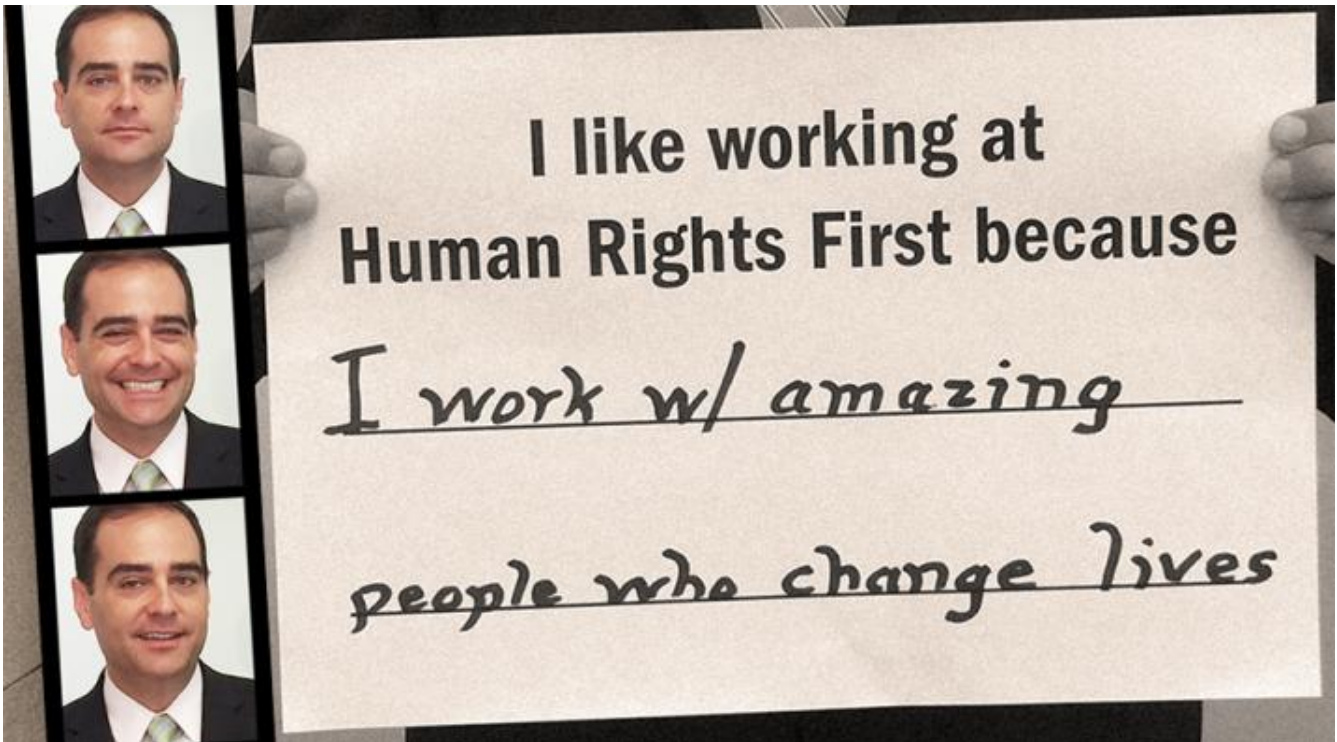 I like working at
Human Rights First because
I work w/ amazing
people who change lives